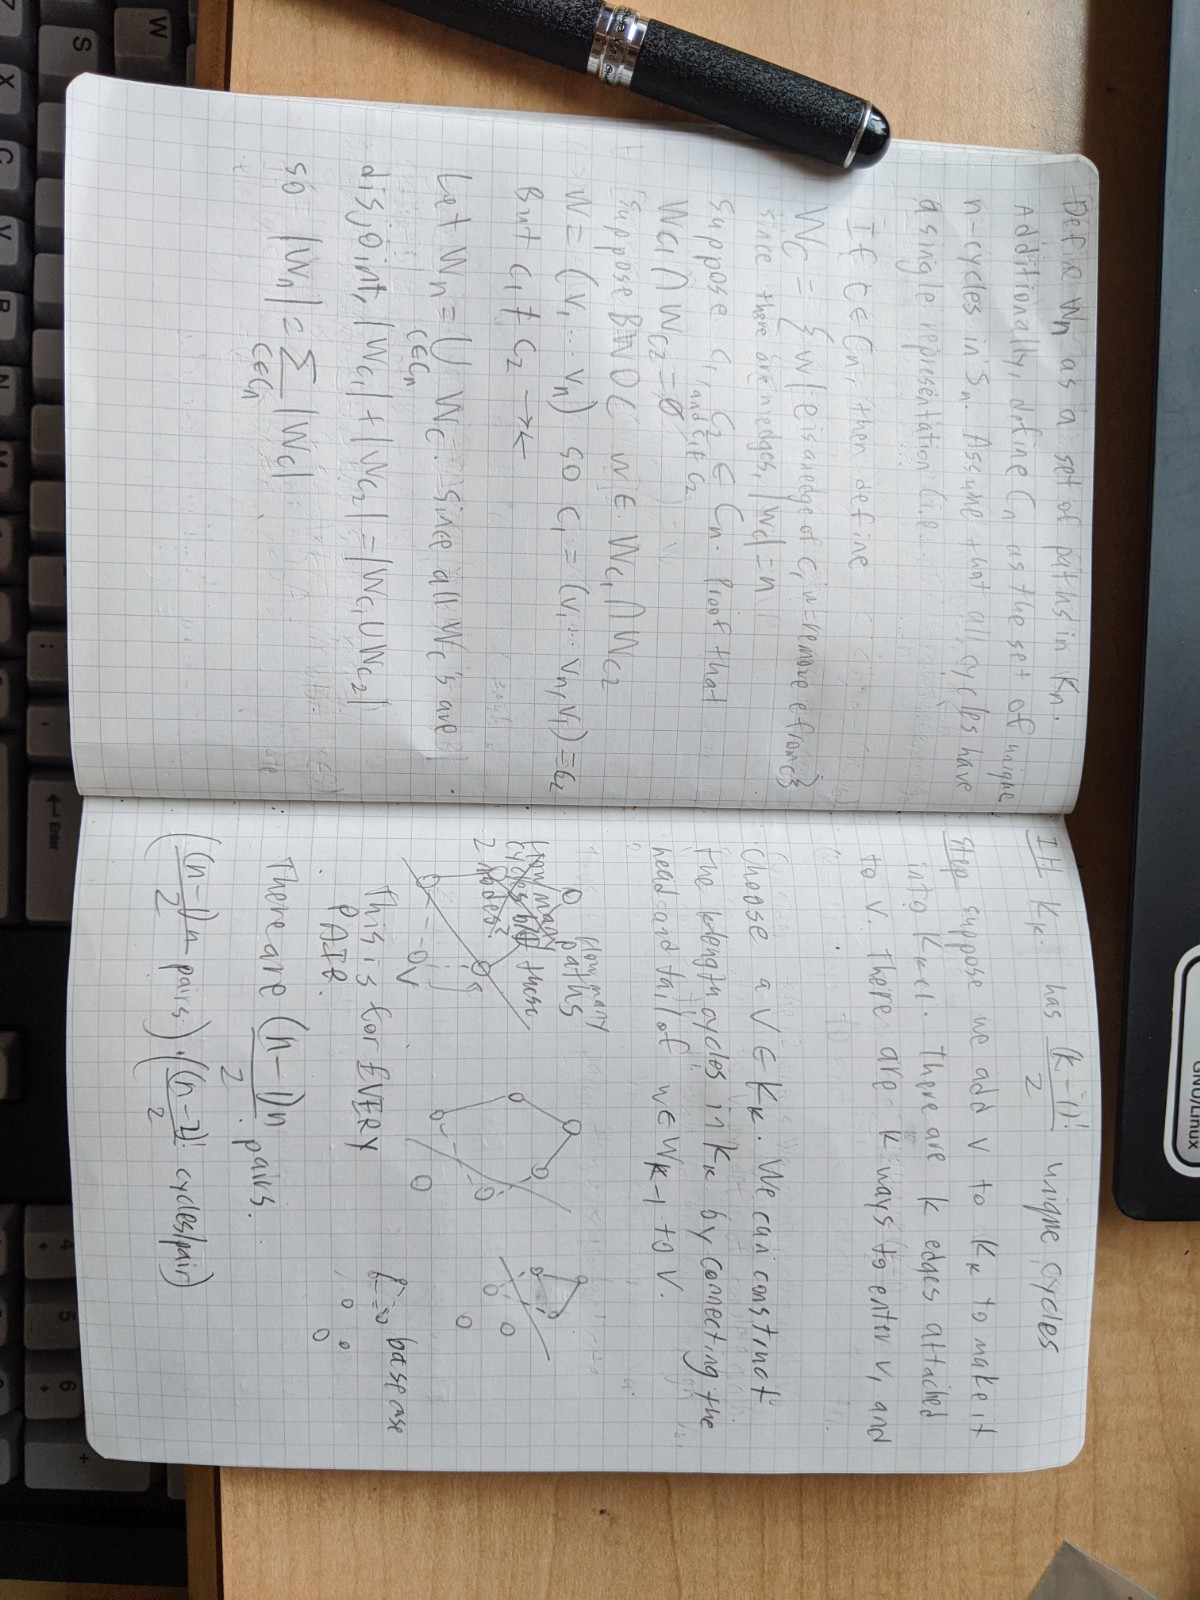 Define Wn as a set of paths in Kn.
Additionally, define Cn as the set of unique
n-cycles in Sn. Assume that all cycles have
a single representation (i.e.
If c ∈ Cn, then define
Wc = { w | e is an edge of c, w = remove e from c}
since there are n edges, |Wc| = n
Suppose c1, c2 ∈ Cn. Proof that
and c1 ≠ c2
Wc1 ∩ Wc2 = ∅
Suppose BWOC w ∈ Wc1 ∩ Wc2
W = (v1 ... vn) so c1 = (v1 ... vn, v1) = c2
But c1 ≠ c2 →←
Let Wn = ⋃ Wc. Since all Wc's are
c∈Cn
disjoint, |Wc1| + |Wc2| = |Wc1 ∪ Wc2|
so |Wn| = ∑ |Wc|
c∈Cn
IH Kk has (k-1)!/2 unique cycles
Step suppose we add v to Kk to make it
into Kk+1. There are k edges attached
to v. There are k ways to enter v, and
Choose a v ∈ Kk. We can construct
the k length cycles in Kk by connecting the
head and tail of w ∈ Wk-1 to v.
How many
paths
How many
cycles b/w these
2 nodes?
v
This is for EVERY
PAIR.
base case
There are (n-1)n/2 pairs.
((n-1)n/2 pairs) · ((n-2)!/2 cycles/pair)
GNU/Linux
W
S
Z
X
C
V
B
N
M
Enter
4
5
6
+